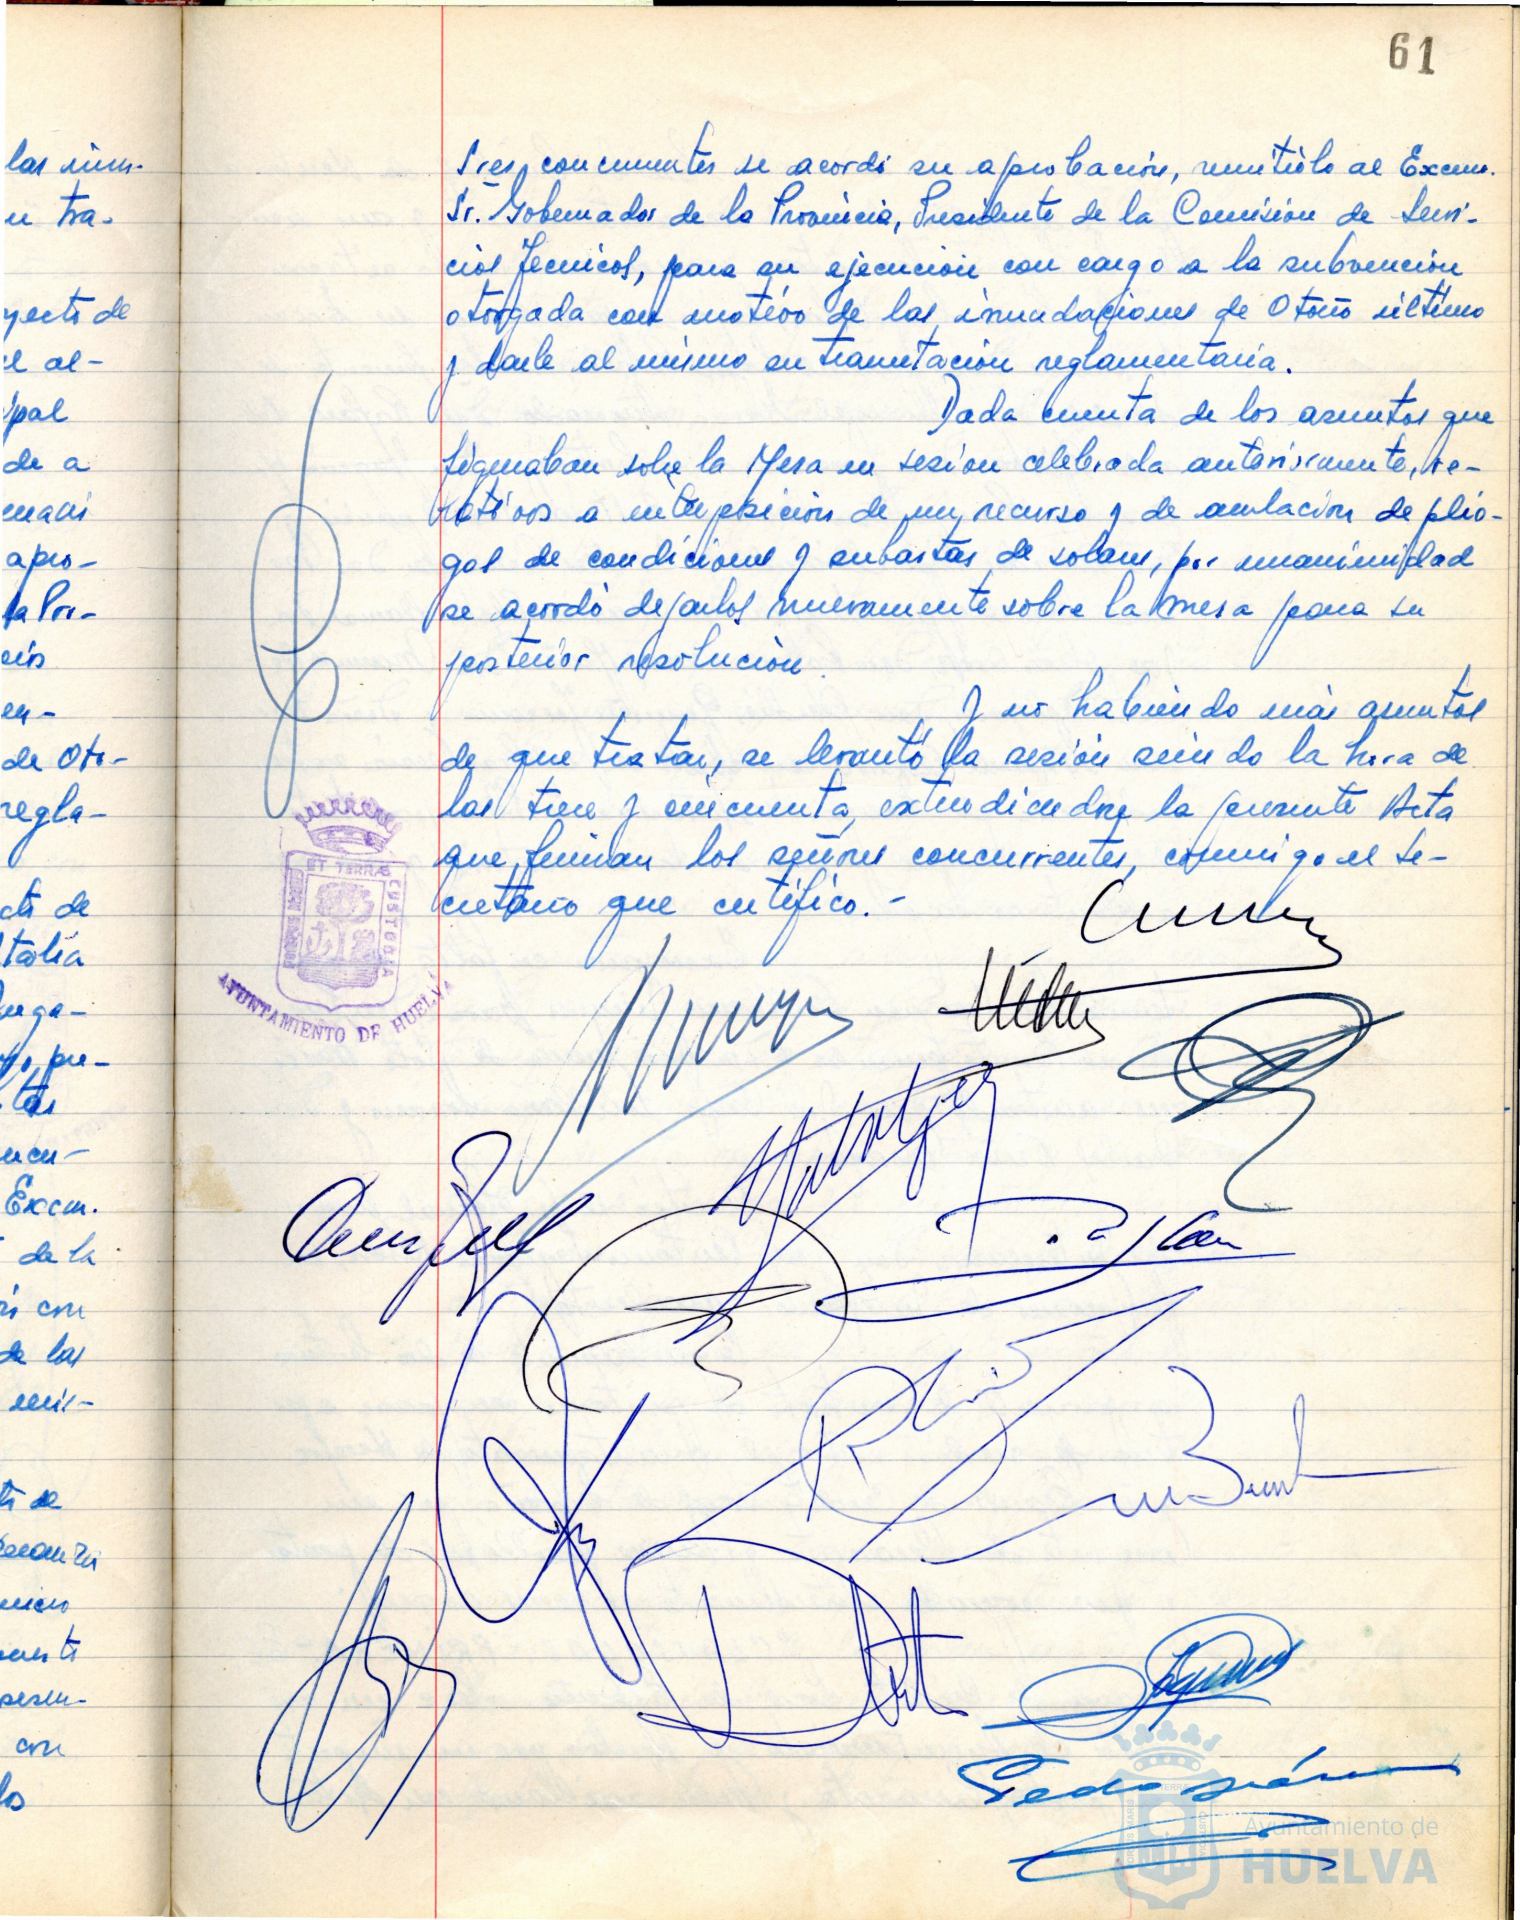 61
Sres. concurrentes se acordó su aprobación, remitirlo al Excmo.
Sr. Gobernador de la Provincia, Presidente de la Comisión de Servi-
cios Tecnicos, para su ejecución con cargo a la subvención
otorgada con motivo de las inundaciones de Otoño último
y darle al mismo su tramitación reglamentaria.
Dada cuenta de los asuntos que
figuraban sobre la Mesa en sesión celebrada anteriormente, re-
lativos a interposición de un recurso y de anulación de plie-
gos de condiciones y subastas de solares, por unanimidad
se acordó dejarlos nuevamente sobre la mesa para su
posterior resolución.
Y no habiendo más asuntos
de que tratar, se levantó la sesión siendo la hora de
las trece y cincuenta, extendiendose la presente Acta
que firman los señores concurrentes, conmigo el Se-
cretario que certifico.-
ET TERRÆ CUSTODIA
AYUNTAMIENTO DE HUELVA
las
en tra-
yecto de
el al-
ipal
de a
apro-
la Pro-
en-
de Oto-
regla-
de
Excm.
de la
con
de las
mis-
de
con
los
Ayuntamiento de
HUELVA